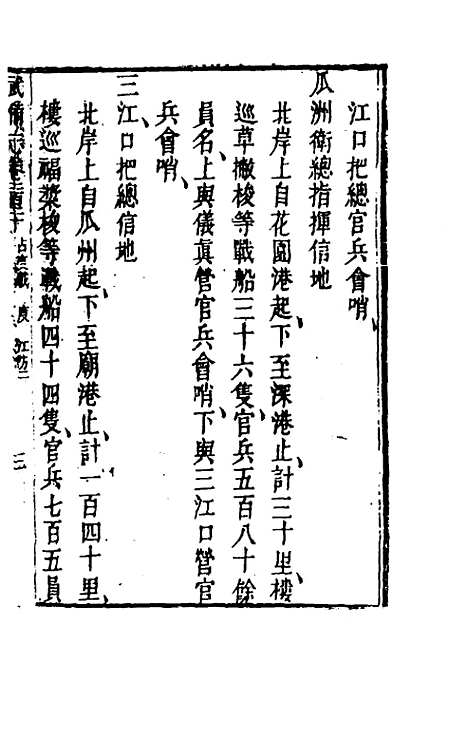 江口把總官兵會哨
瓜洲衛總指揮信地
北岸上自花園港起下至深港止計三十里樓
巡草撇梭等戰船三十六隻官兵五百八十餘
員名上與儀真營官兵會哨下與三江口營官
兵會哨
三江口把總信地
北岸上自瓜州起下至廟港止計一百四十里
樓巡福槳梭等戰船四十四隻官兵七百五員
武備志 占度載 度 江防二 三